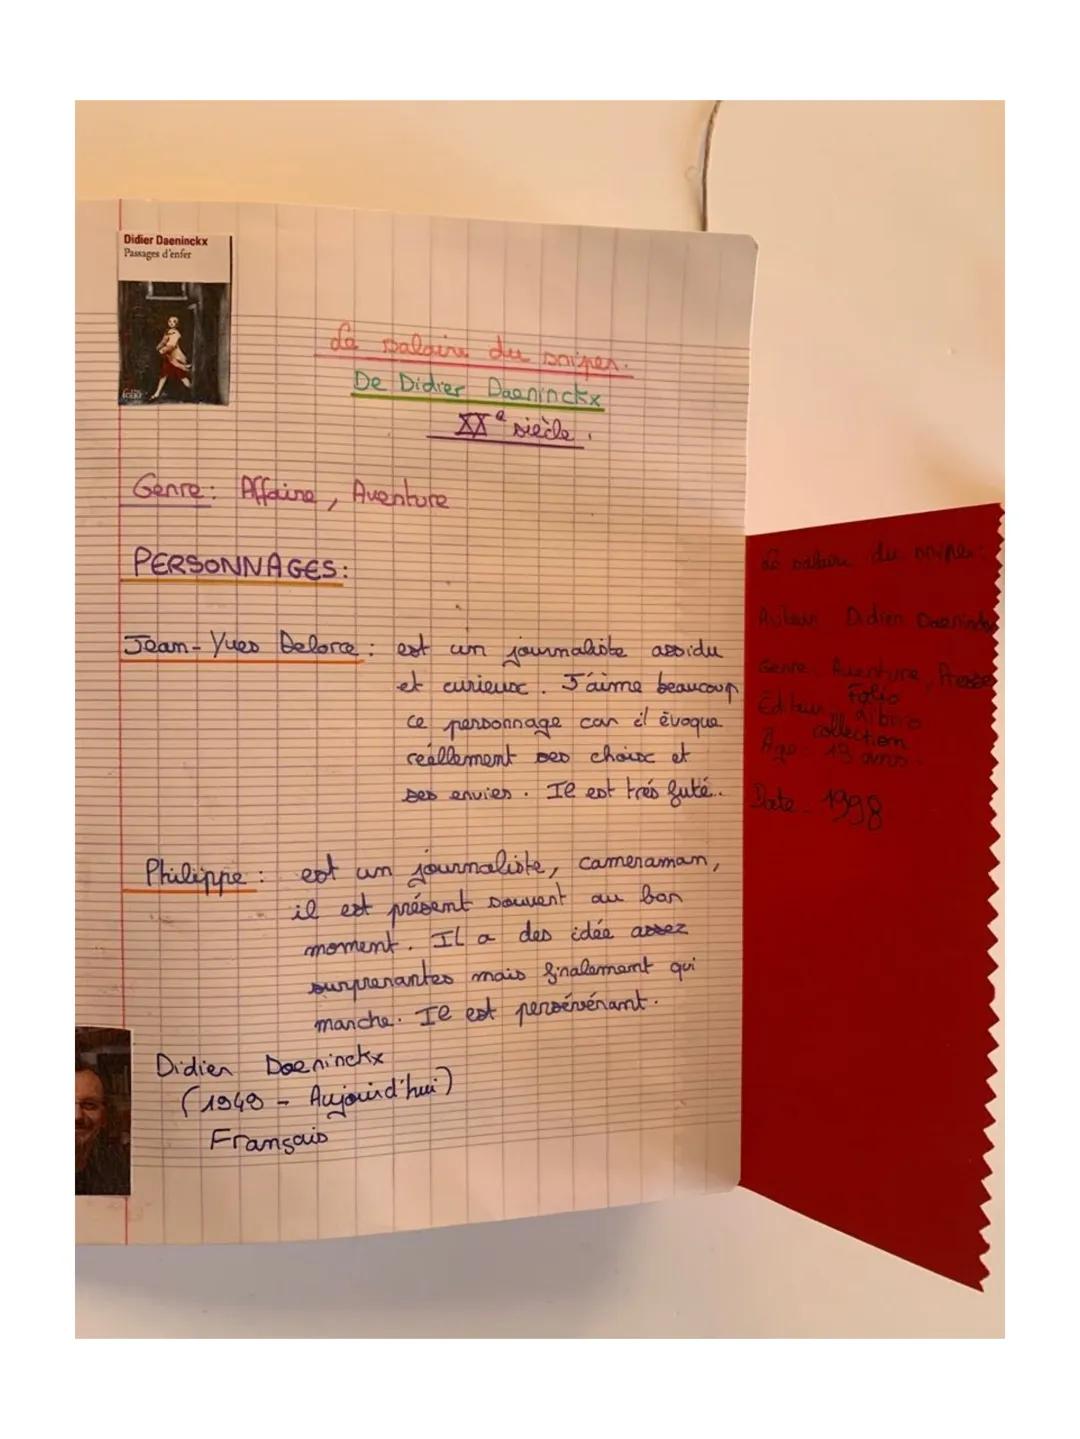 Didier Daeninckx
Passages d'enfer
folio
Le salaire du sniper.
De Didier Daeninckx
XXe siècle.
Genre: Affaire, Aventure
PERSONNAGES:
Jean-Yves Delorce : est un journaliste assidu
et curieux. J'aime beaucoup
ce personnage car il évoque
réellement ses choix et
ses envies. Il est trés futé..
Philippe : est un journaliste, cameraman,
il est présent souvent au bon
moment. Il a des idée assez
surprenantes mais finalement qui
marche. Il est persévérant.
Didier Daeninckx
(1949 - Aujourd'hui)
Français
Le salaire du sniper:
Auteur Didier Daeninckx
Genre: Aventure, Presse
Folio
Editeur: Librio
collection
Age: 13 ans.
Date - 1998